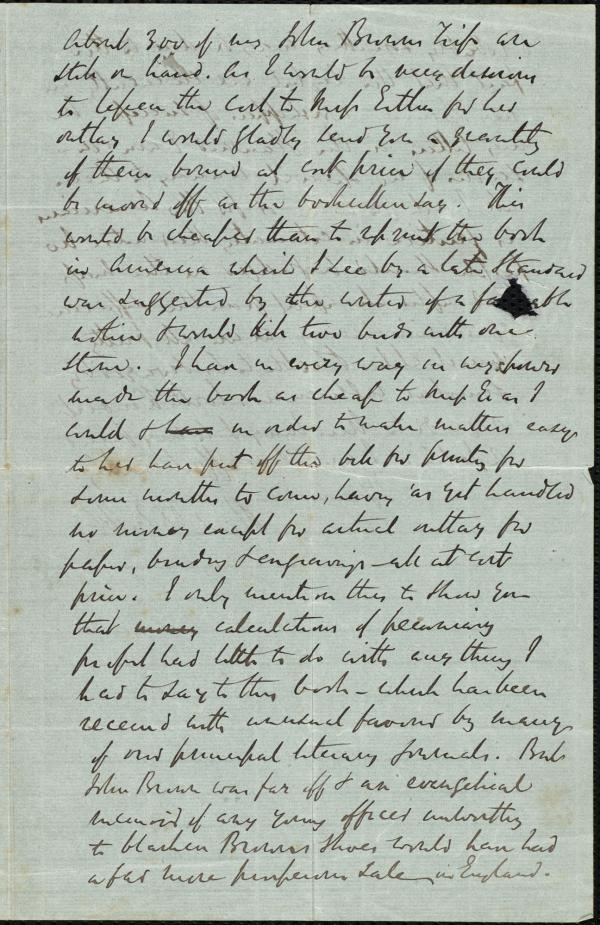 About 300 of my John Browns Life are
still on hand. As I would be very desirous
to lessen the cost to Miss Esther for her
outlay I would gladly send you a quantity
of them bound at cost price if they could
be moved off as the booksellers say. This
would be cheaper than to reprint the book
in America which I see by a late Standard
was suggested by the writer of a fa able
notice & would kill two birds with one
stone. I have in every way in my power
made the book as cheap to Miss E. as I
could & have in order to make matters easy
to her have put off the bill for printing for
some months to come, having as yet handled
no money except for actual outlay for
paper, binding & engravings – all at cost
price. I only mention this to show you
that money calculations of pecuniary
profit had little to do with anything I
had to say to this book – which has been
received with unusual favour by many
of our principal literary journals. But
John Brown was far off & an evangelical
memoir of any young officer unworthy
to blacken Browns shoes would have had
a far more prosperous sale in England.